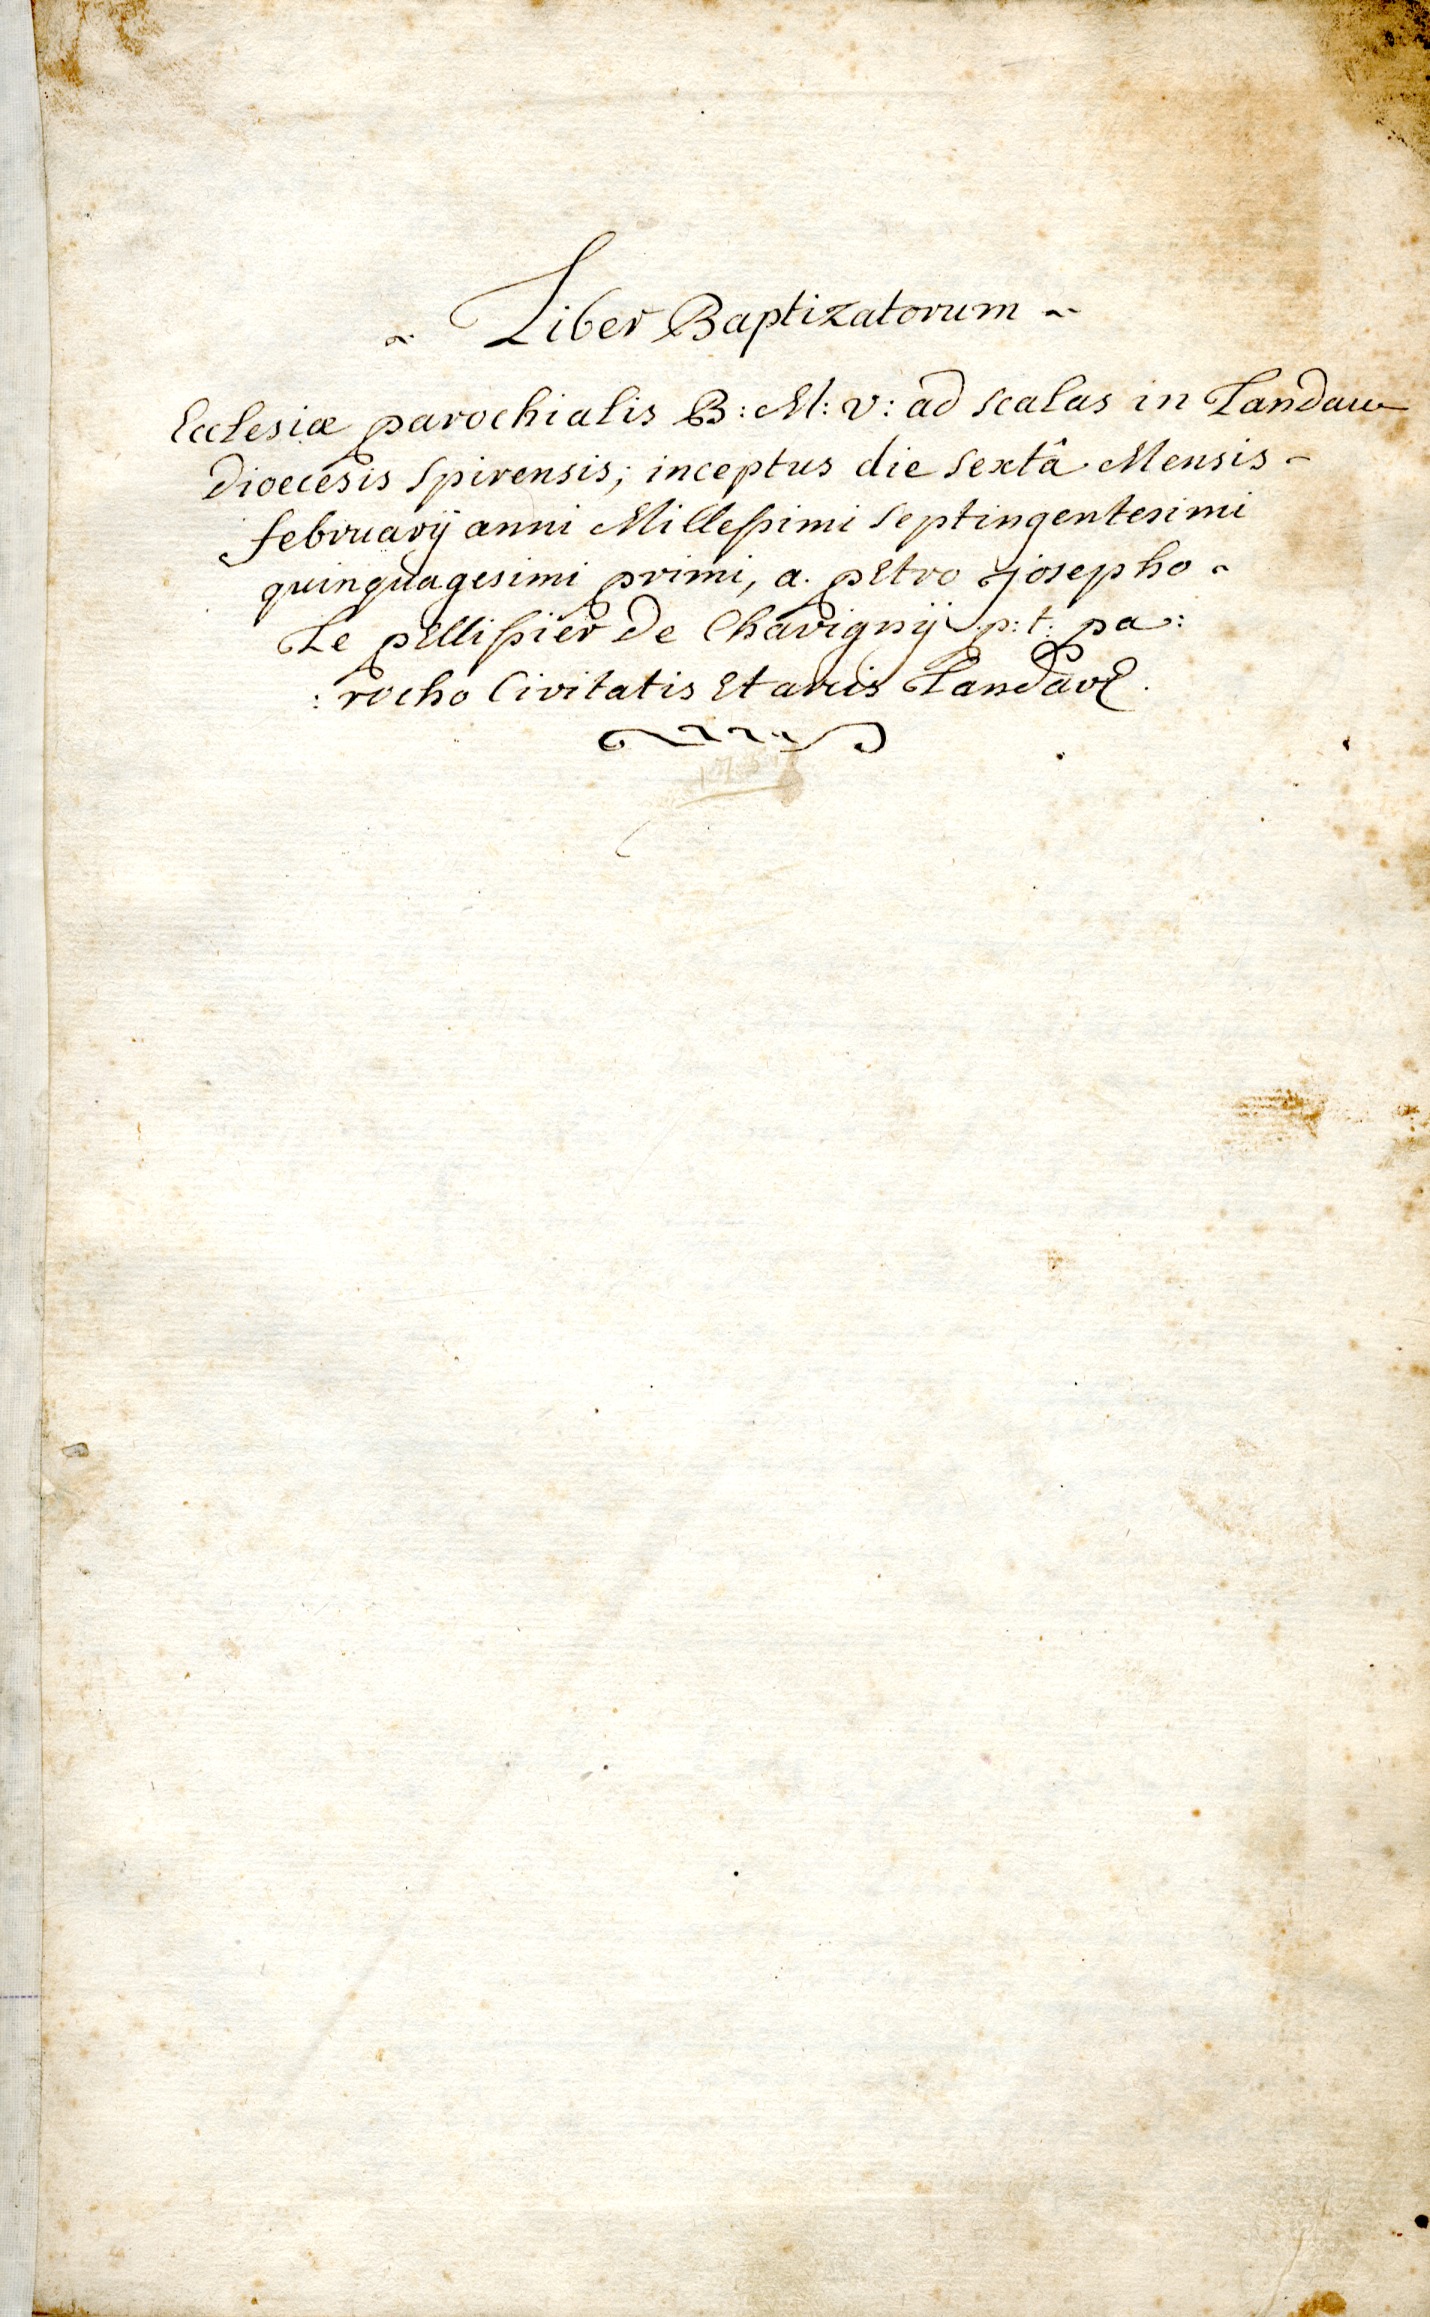 ~ Liber Baptizatorum ~
Ecclesiæ parochialis B: M: v: ad scalas in Landau
Dioecesis Spirensis; inceptus die sextâ Mensis -
februarij anni Millessimi septingentesimi
quinquagesimi primi, a. petro josepho -
Le pellissier de Chavignij p: t: pa:
: rocho Civitatis et arcis Landavé.